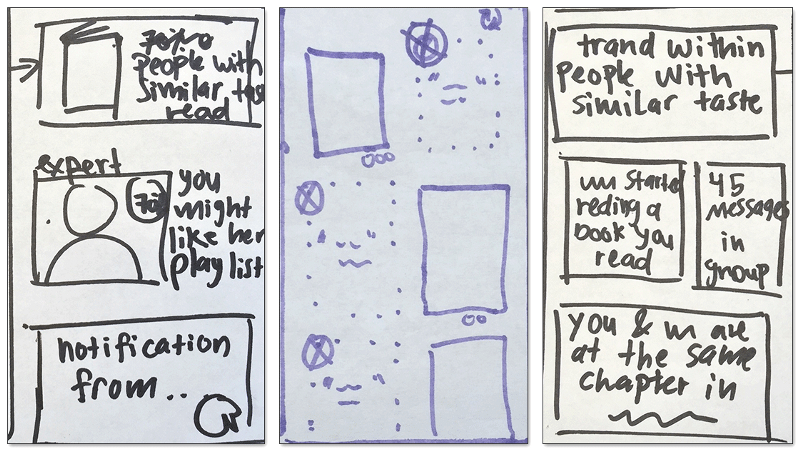 people with
similar tas
read
expert
70
you
might
like her
play list
notification
from..
trand within
people with
similar taste
um started
reding a
book you
read
45
messages
in
group
you & um are
at the same
chapter in